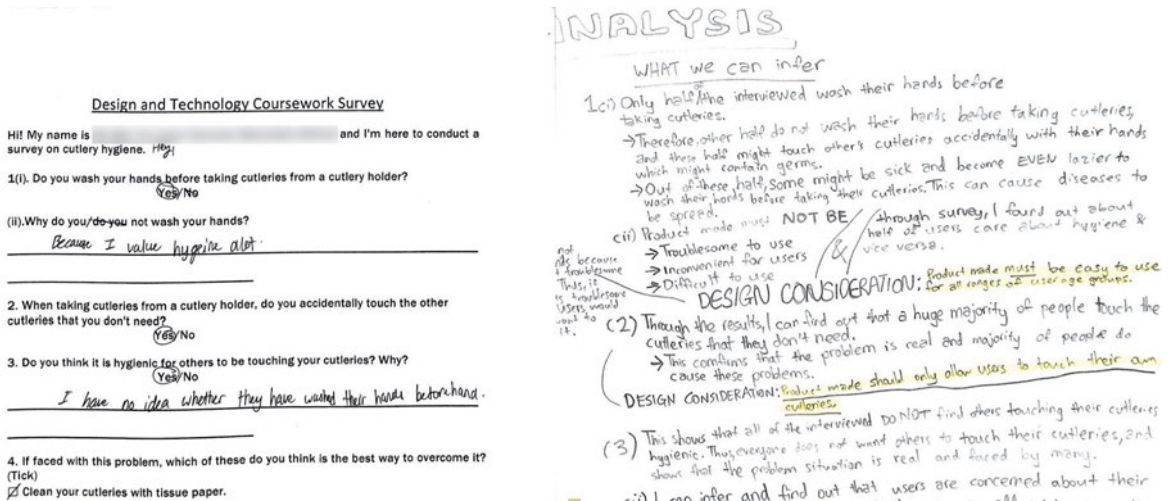 Design and Technology Coursework Survey
Hi! My name is and I'm here to conduct a
survey on cutlery hygiene. Hey!
1(i). Do you wash your hands before taking cutleries from a cutlery holder?
Yes/No
(ii).Why do you/do you not wash your hands?
Because I value hygeine alot.
2. When taking cutleries from a cutlery holder, do you accidentally touch the other
cutleries that you don't need?
Yes/No
3. Do you think it is hygienic for others to be touching your cutleries? Why?
Yes/No
I have no idea whether they have washed their hands beforehand.
4. If faced with this problem, which of these do you think is the best way to overcome it?
(Tick)
Clean your cutleries with tissue paper.
NALYSIS
WHAT we can infer
1ci) Only half of the interviewed wash their hands before
taking cutleries.
→Therefore, other half do not wash their hands before taking cutleries,
and these half might touch other's cutleries accidentally with their hands
which might contain germs.
→Out of these, half, some might be sick and become EVEN lazier to
wash their hands before taking their cutleries. This can cause diseases to
be spread.
cii) Product made must NOT BE
→Troublesome to use
→Inconvenient for users
→Difficult to use
&
through survey, I found out about
half of users care about hygiene &
vice versa.
not
because
troublesome
Thus, it
is troublesome
users would
want to
it.
DESIGN CONSIDERATION: Product made must be easy to use
for all ranges of user age groups.
(2) Through the results, I can find out that a huge majority of people touch the
cutleries that they don't need.
→This comfirms that the problem is real and majority of people do
cause these problems.
DESIGN CONSIDERATION: Product made should only allow users to touch their own
cutleries.
(3) This shows that all of the interviewed DO NOT find others touching their cutleries
hygienic. Thus, everyone does not want others to touch their cutleries, and
shows that the problem situation is real and faced by many.
I can infer and find out that users are concerned about their